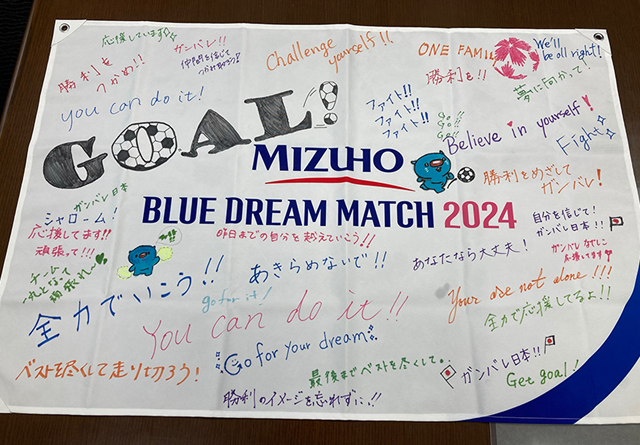 応援しています
ガンバレ!!
仲間を信じて
つかみ取ろう!
Challenge
yourself!!
ONE FAMILY
We'll
be all right!
勝利を
つかめ!!
勝利を!!
夢に向かって!
you can do it!
GOAL!
ファイト!!
ファイト!!
ファイト!!
Go!!
Go!!
Go!!
Believe in yourself!
Fight
MIZUHO
勝利をめざして
ガンバレ!
BLUE DREAM MATCH 2024
ガンバレ日本
シャローム!
応援してます!!
頑張って!!!
昨日までの自分を越えていこう!!
自分を信じて!
ガンバレ日本!!
ガンバレ なでしこ
応援してます
あきらめないで!!
あなたなら大丈夫!
全力でいこう!!
go for it!
Your are not alone!!!
You can do it!!
全力で応援してるよ!!
Go for your dream
ベストを尽くして走り切ろう!
最後までベストを尽くして。
ガンバレ日本!!
Get goal!
勝利のイメージを忘れずに!!